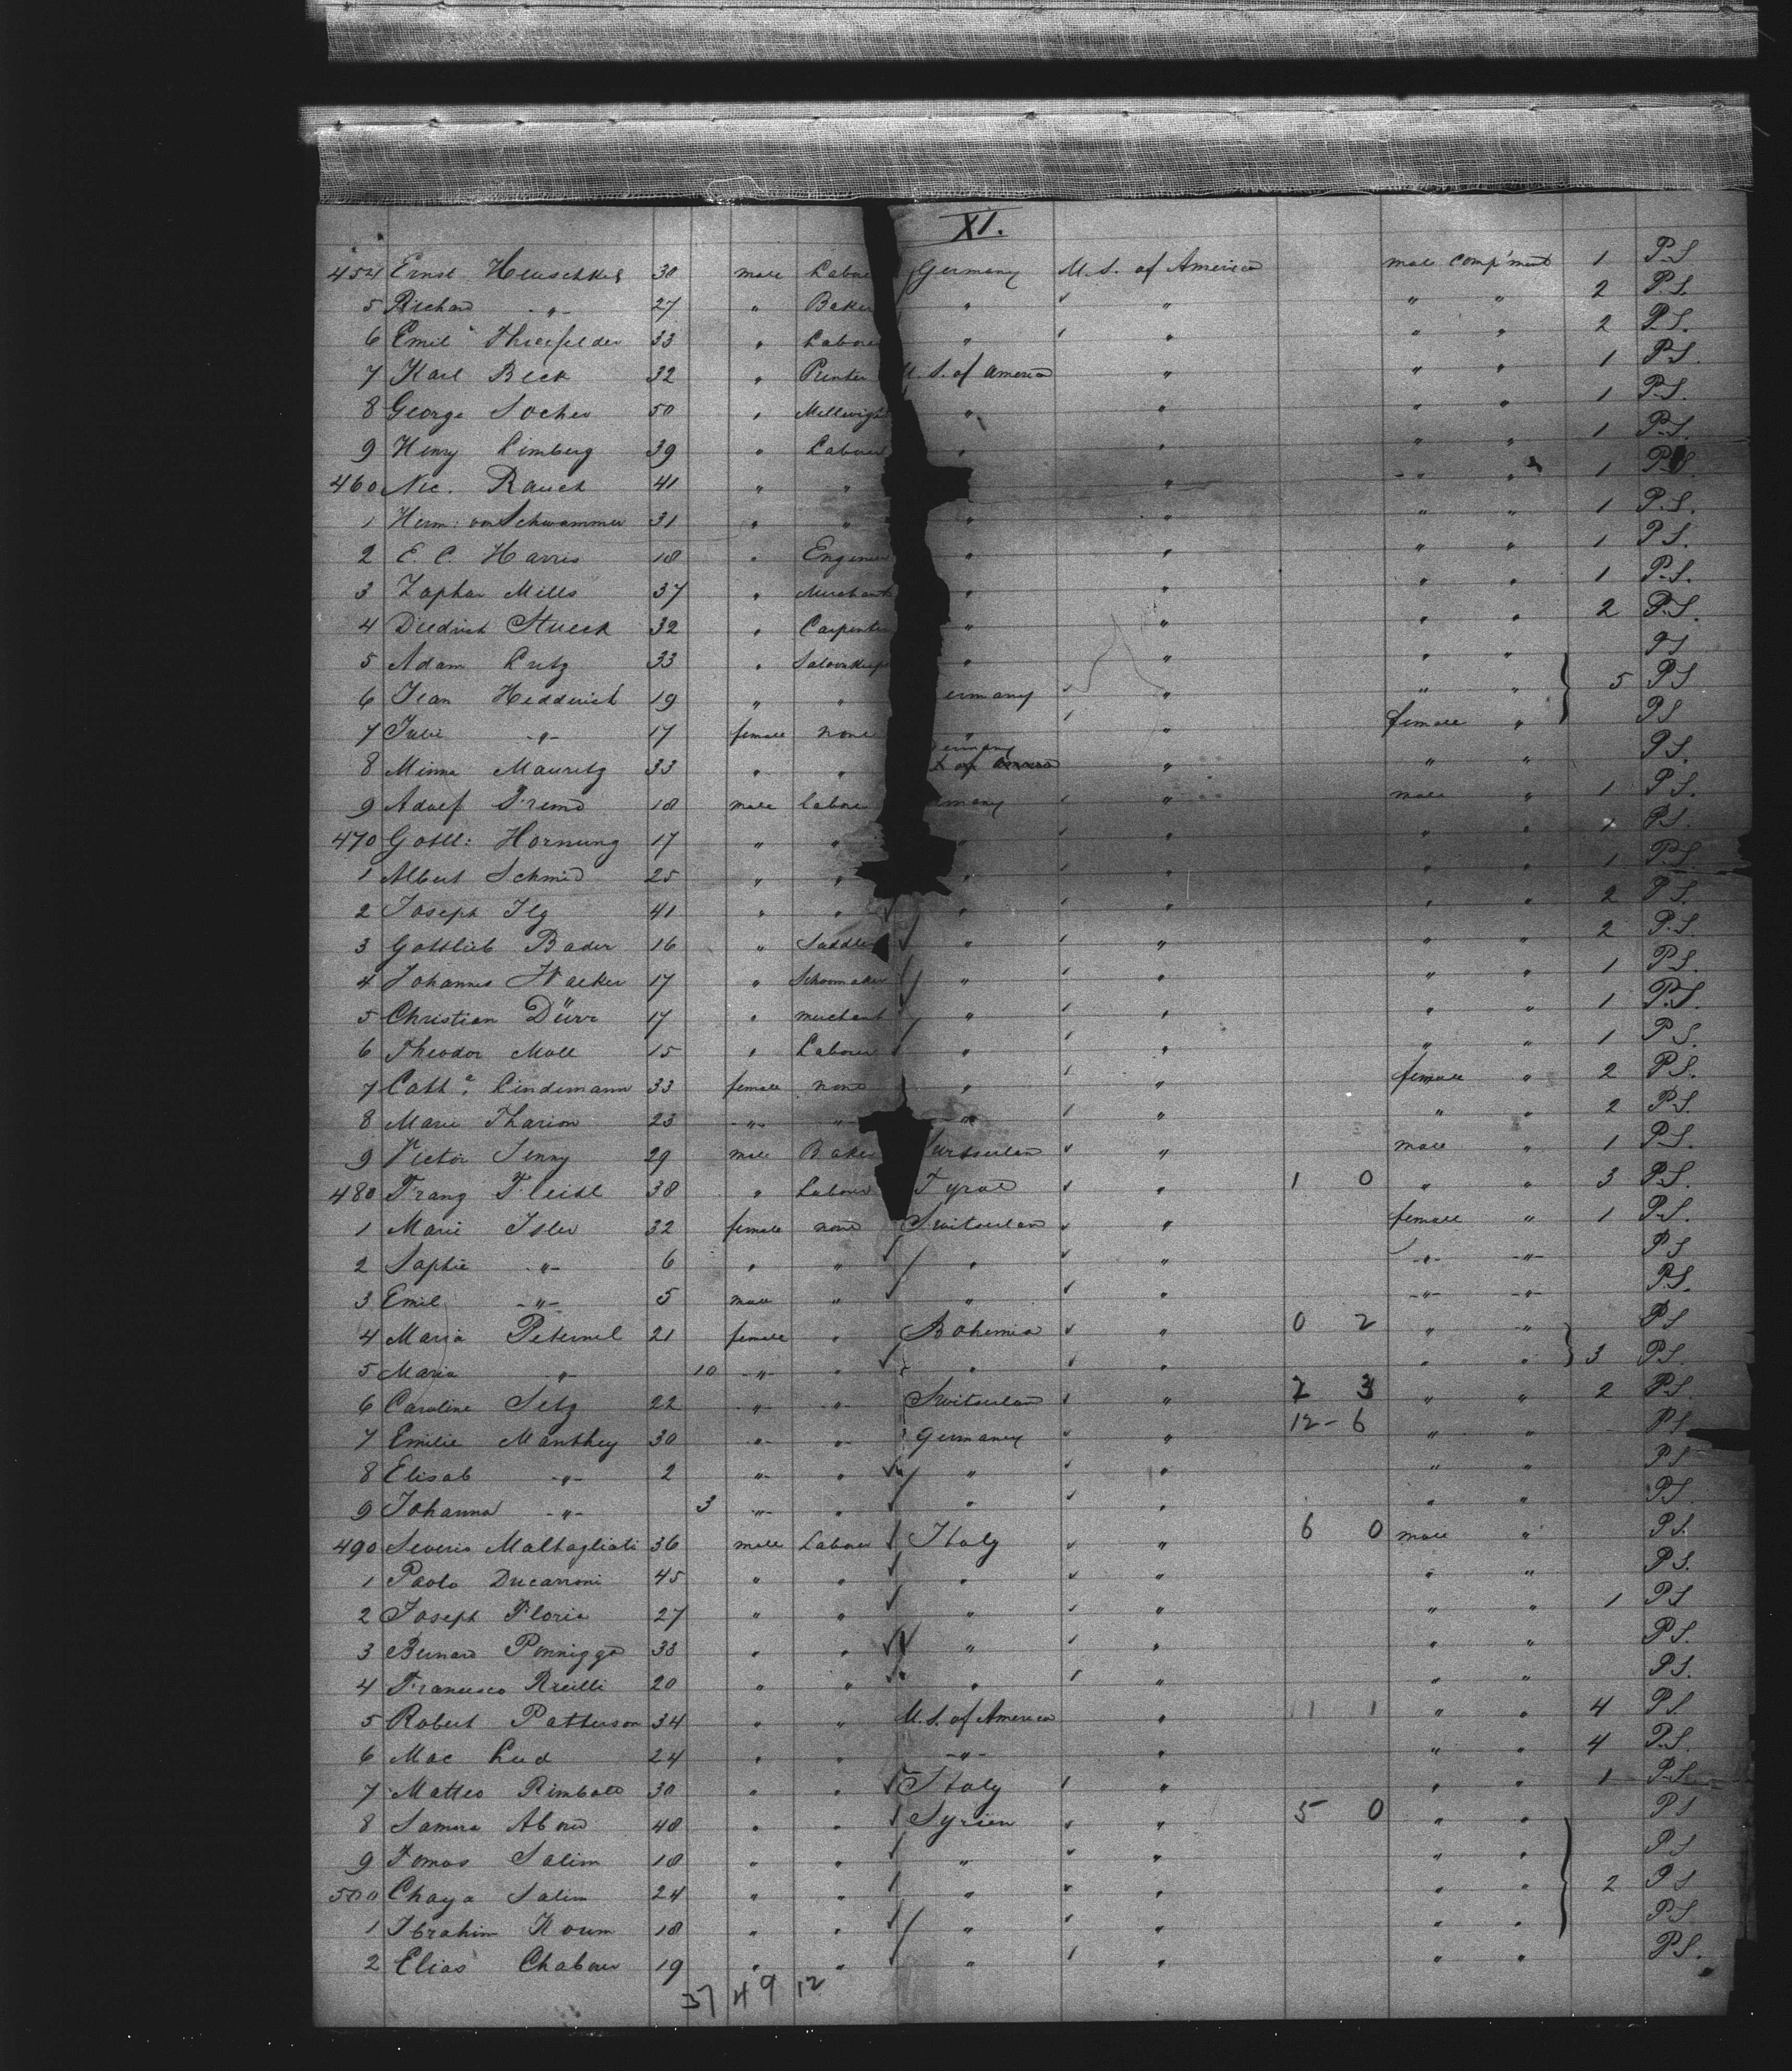 XI.
454 Ernst Heuschkel 30 male Labou Germany U. S. of America male comp'ment 1 P.S
5 Richard -"- 27 " Baker " " " " 2 P.S.
6 Emil Thierfelder 33 " Laboure " " " " 2 P.S.
7 Karl Beck 32 " Printer U. S. of America " " " 1 P.S.
8 George Socher 50 " Millwigh " " " " 1 P.S.
9 Henry Limberg 39 " Labour " " " " 1 P.S.
460 Nic. Rauch 41 " " " " " 1 P.S.
1 Herm: von Schwammer 31 " " " " " " 1 P.S.
2 E. C. Harris 18 " Enginee " " " " 1 P.S.
3 Zophar Mills 37 " Merchant " " " " 1 P.S.
4 Diedrich Stueck 32 " Carpente " " " " 2 P.S.
5 Adam Lutz 33 " Saloonkeep " " " " PS
6 Jean Hedderich 19 " " ermany " " " 5 PS
7 Julie -"- 17 female none " " female " PS
8 Minna Mauritz 33 " " ermany " " " P.S.
9 Adolf Fremd 18 male Laboure many " male " 1 P.S.
470 Gottl: Hornung 17 " " " " " " 1 P.S.
1 Albert Schmid 25 " " " " " " 1 P.S.
2 Joseph Ilg 41 " " " " " " 2 P.S.
3 Gottlieb Bader 16 " Saddle " " " " 2 P.S.
4 Johannes Wacker 17 " Schoomaker " " " " 1 P.S.
5 Christian Dürr 17 " merchant " " " " 1 P.S.
6 Theodor Moll 15 " Labour " " " " 1 P.S.
7 Cath. Lindemann 33 female none " " female " 2 P.S.
8 Marie Tharion 23 -"- -"- -"- " " " 2 P.S.
9 Victor Jenny 29 male Baker " male " 1 P.S.
480 Franz Fleisl 38 " Labour Tyrol " 1 0 " " 3 P.S.
1 Marie Isler 32 female none Switserlan " female " 1 P.S.
2 Sophie -"- 6 " " " " -"- -"- P.S
3 Emil -"- 5 male " " " -"- -"- P.S.
4 Maria Peternel 21 female " Bohemia " 0 2 " " P.S
5 Maria -"- 10 -"- " " " " " 3 P.S.
6 Caroline Setz 22 -"- -"- Switserlan " 2 3 " " 2 P.S.
7 Emilie Manthey 30 -"- -"- Germany " 12-6 " " P.S
8 Elisab -"- 2 -"- " " " " " P.S
9 Johanna -"- 3 -"- " " " " " P.S.
490 Severio Maltagliati 36 male Labour Italy " 6 0 male " P.S.
1 Paolo Ducarroni 45 " " " " " " P.S.
2 Joseph Floria 27 " " " " " " 1 P.S
3 Bernard 33 " " " " " " P.S.
4 Francesco 20 " " " " " " P.S.
5 Robert Patterson 34 " " U. S. of America " 11 1 " " 4 P.S.
6 Mac Lud 24 " " -"- " " " 4 P.S.
7 Matteo Rimbold 30 " " Italy " " " 1 P.S.
8 Samara Aboud 48 " " Syrien " 5 0 " " P.S
9 Tomas Salim 18 " " " " " " P.S
500 Chaya Salim 24 " " " " " " 2 P.S
1 Ibrahim Koum 18 " " " " " " P.S
2 Elias Chabour 19 " " " " " " P.S.
37 49 12